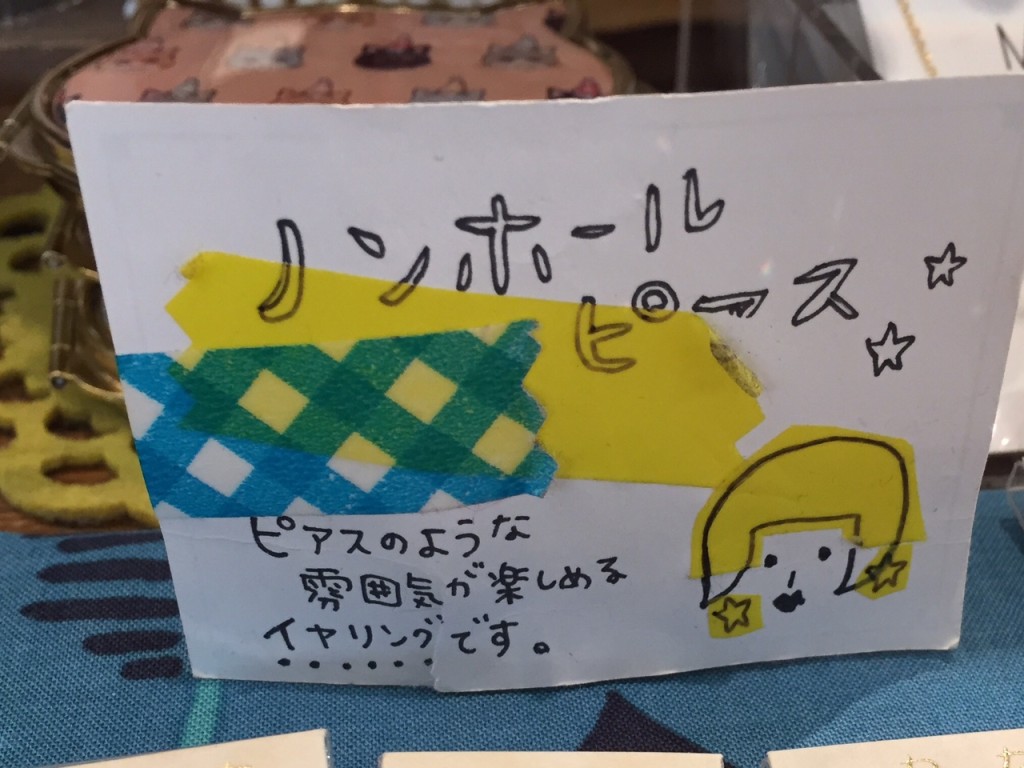 ノンホール
ピース
ピアスのような
雰囲気が楽しめる
イヤリングです。